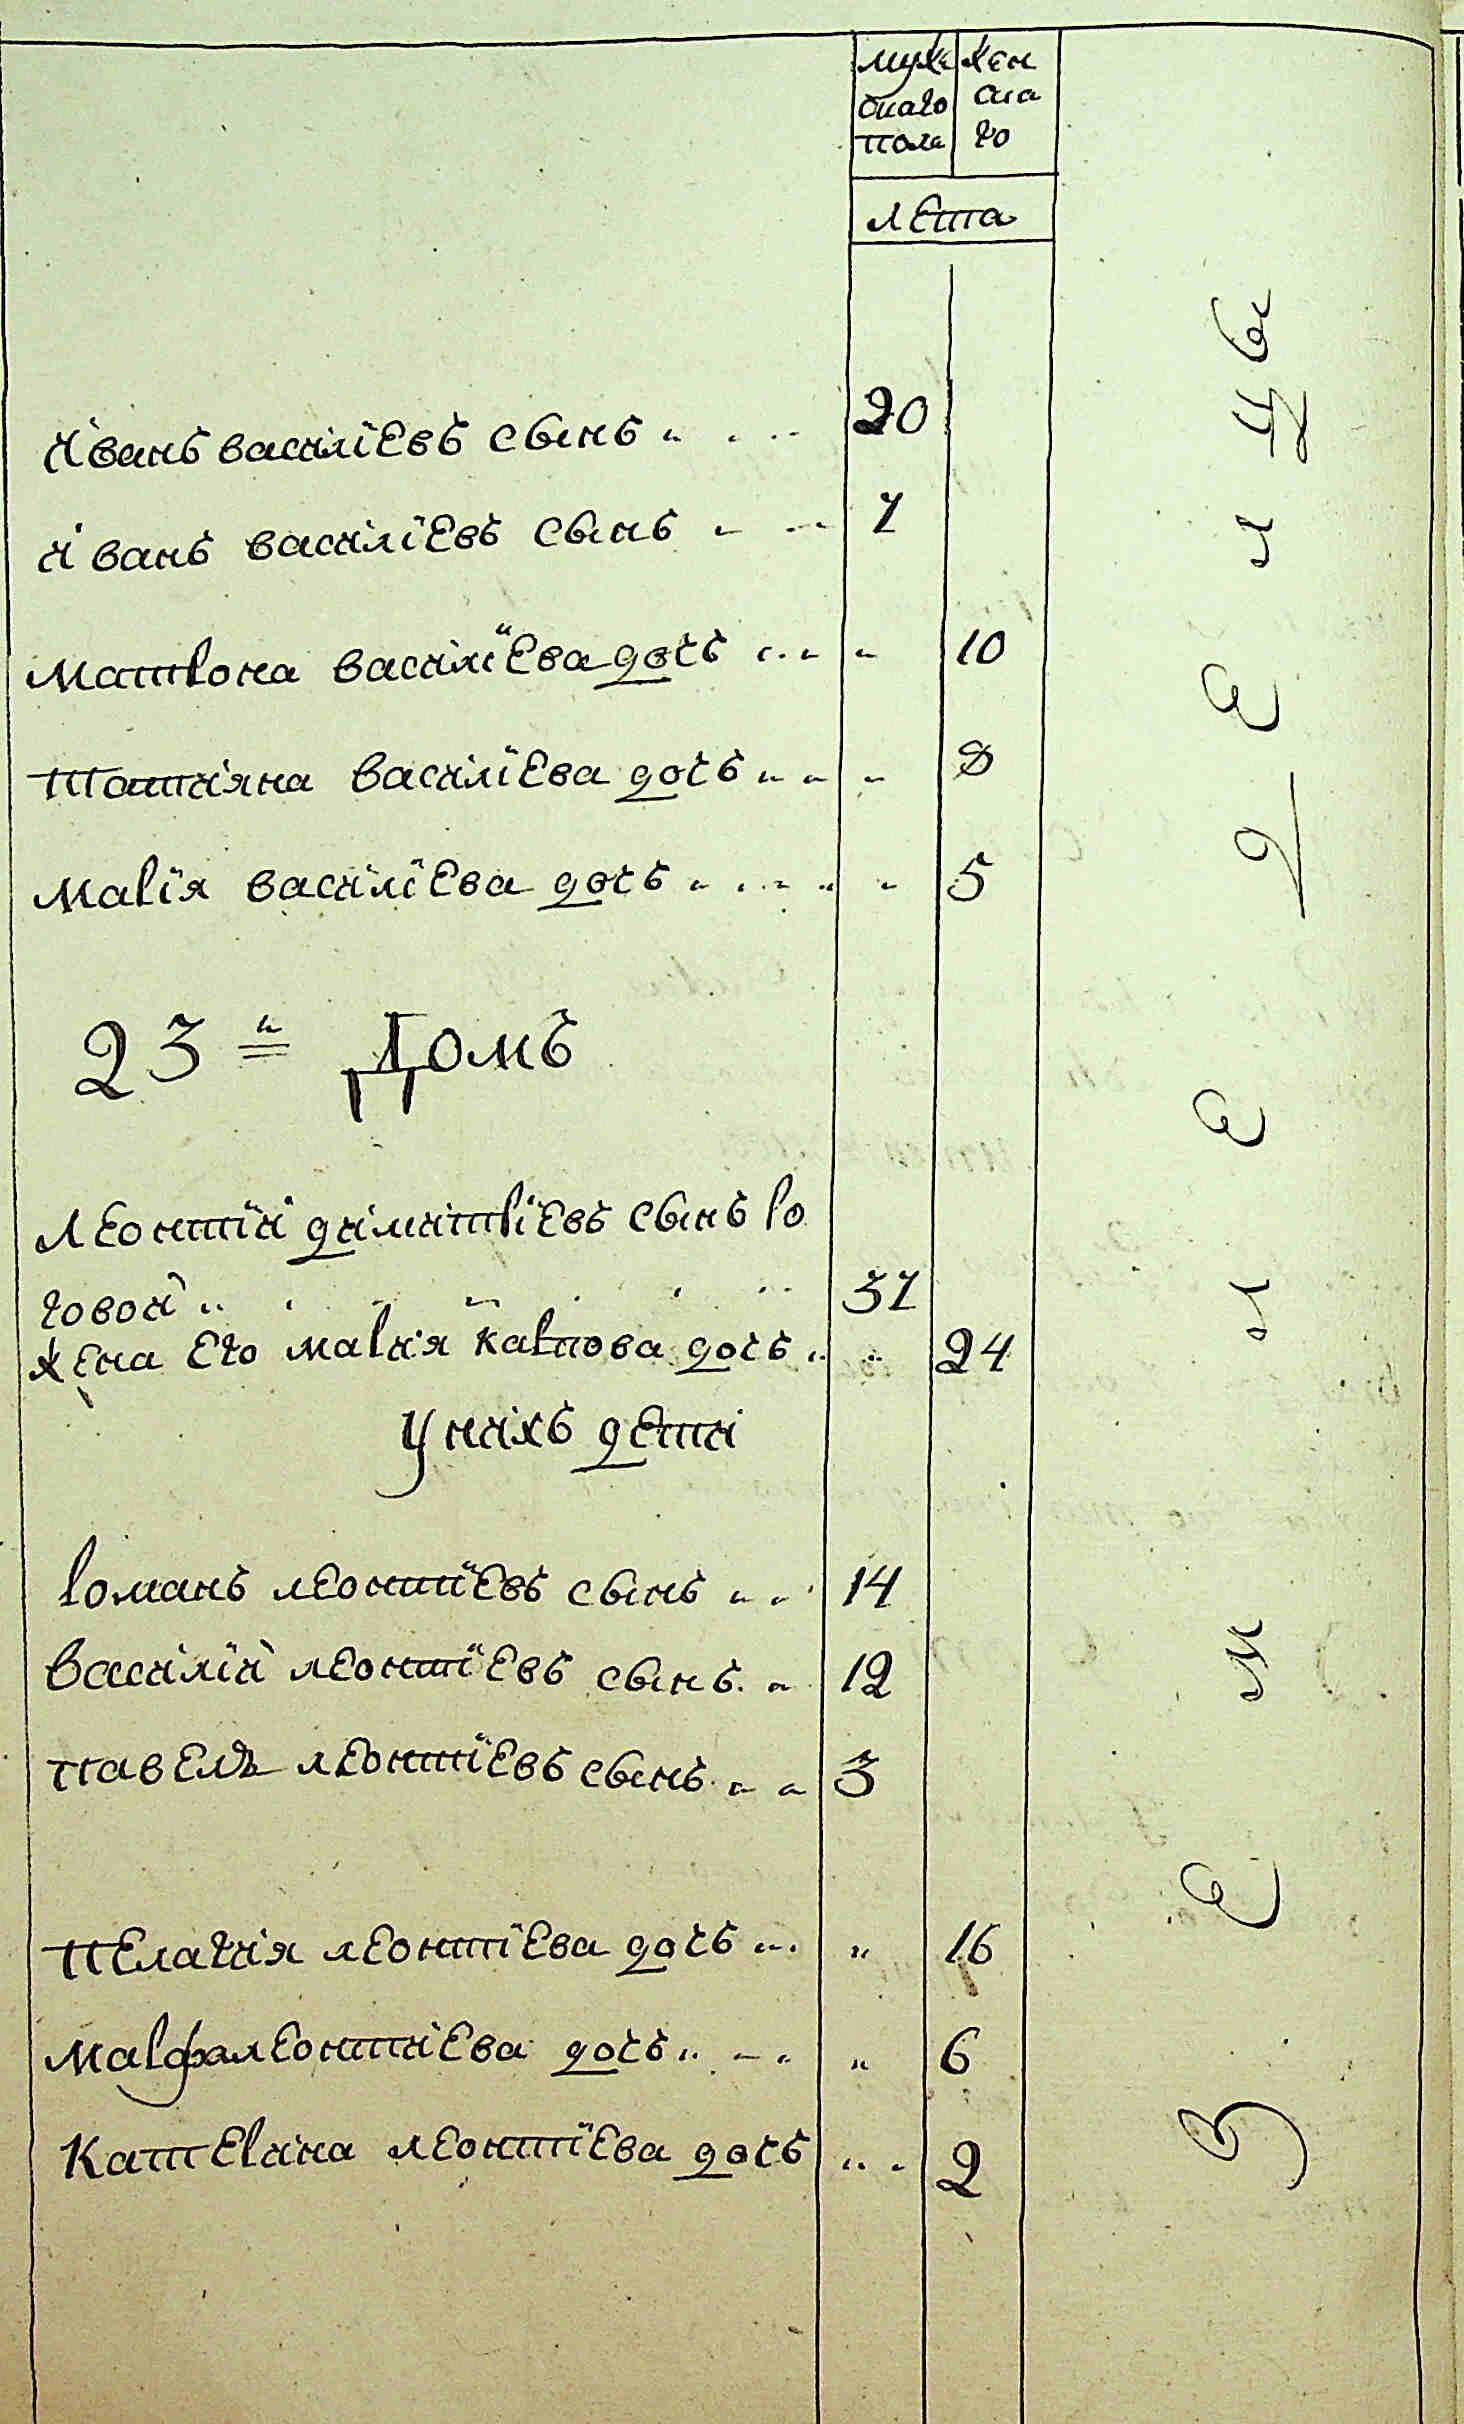 муже жен
скаго ска
пола го
лета
иванъ василіевъ сынъ 20
иванъ василіевъ сынъ 7
матрона василіева дочь 10
татияна василіева дочь 8
марія василіева дочь 5
23 й Домъ
леонтій димитріевъ сынъ ро
говой 37
жена его мария карпова дочь 24
У нихъ дети
романъ леонтіевъ сынъ 14
василій леонтіевъ сынъ 12
павелъ леонтіевъ сынъ 3
пелагия леонтіева дочь 16
марфа леонтиева дочь 6
катерина леонтіева дочь 2
З е м л е д е л ц ы